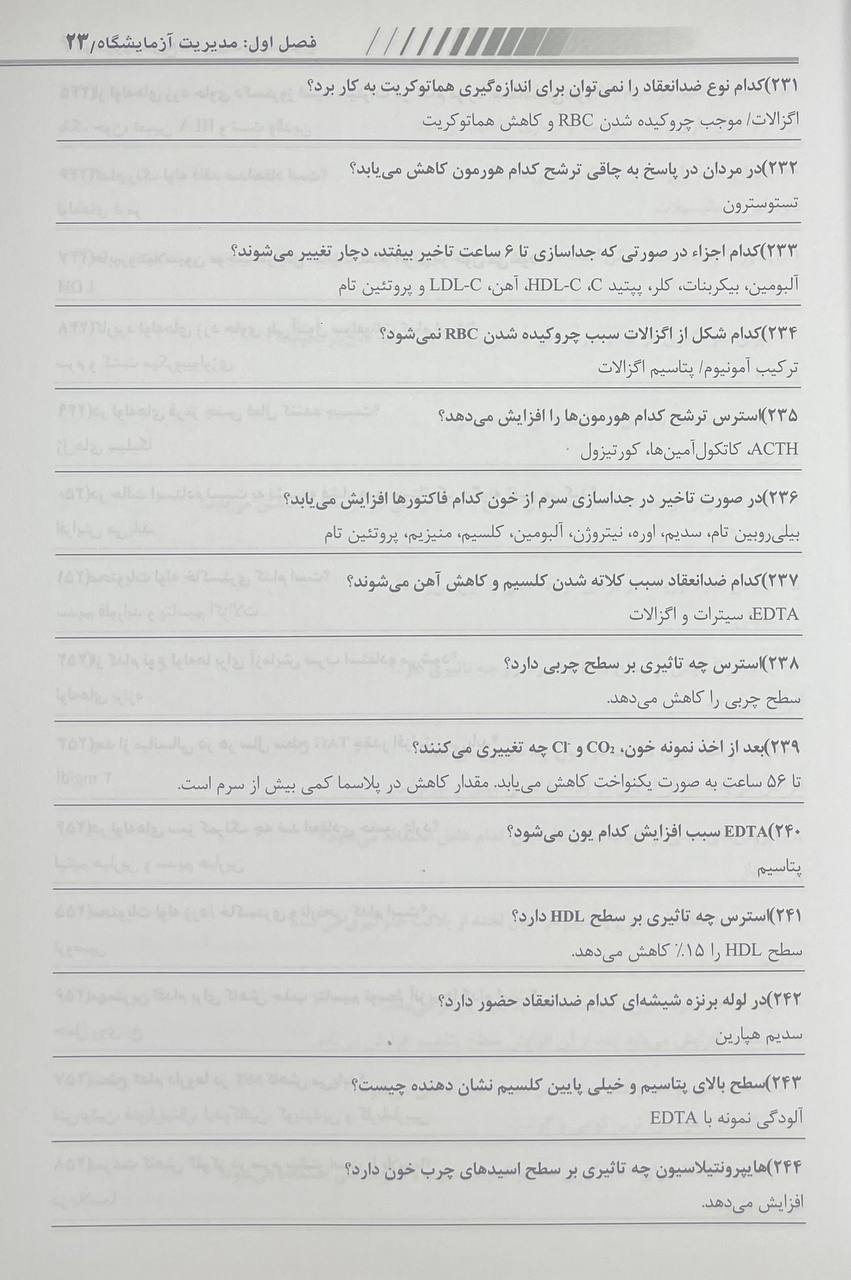 فصل اول: مدیریت آزمایشگاه/۲۳
۲۳۱)کدام نوع ضدانعقاد را نمی‌توان برای اندازه‌گیری هماتوکریت به کار برد؟
اگزالات/ موجب چروکیده شدن RBC و کاهش هماتوکریت
۲۳۲)در مردان در پاسخ به چاقی ترشح کدام هورمون کاهش می‌یابد؟
تستوسترون
۲۳۳)کدام اجزاء در صورتی که جداسازی تا ۶ ساعت تاخیر بیفتد، دچار تغییر می‌شوند؟
آلبومین، بیکربنات، کلر، پپتید C، HDL-C، آهن، LDL-C و پروتئین تام
۲۳۴)کدام شکل از اگزالات سبب چروکیده شدن RBC نمی‌شود؟
ترکیب آمونیوم/ پتاسیم اگزالات
۲۳۵)استرس ترشح کدام هورمون‌ها را افزایش می‌دهد؟
ACTH، کاتکول‌آمین‌ها، کورتیزول
۲۳۶)در صورت تاخیر در جداسازی سرم از خون کدام فاکتورها افزایش می‌یابد؟
بیلی‌روبین تام، سدیم، اوره، نیتروژن، آلبومین، کلسیم، منیزیم، پروتئین تام
۲۳۷)کدام ضدانعقاد سبب کلاته شدن کلسیم و کاهش آهن می‌شوند؟
EDTA، سیترات و اگزالات
۲۳۸)استرس چه تاثیری بر سطح چربی دارد؟
سطح چربی را کاهش می‌دهد.
۲۳۹)بعد از اخذ نمونه خون، CO₂ و Cl⁻ چه تغییری می‌کنند؟
تا ۵۶ ساعت به صورت یکنواخت کاهش می‌یابد. مقدار کاهش در پلاسما کمی بیش از سرم است.
۲۴۰)EDTA سبب افزایش کدام یون می‌شود؟
پتاسیم
۲۴۱)استرس چه تاثیری بر سطح HDL دارد؟
سطح HDL را ۱۵٪ کاهش می‌دهد.
۲۴۲)در لوله برنزه شیشه‌ای کدام ضدانعقاد حضور دارد؟
سدیم هپارین
۲۴۳)سطح بالای پتاسیم و خیلی پایین کلسیم نشان دهنده چیست؟
آلودگی نمونه با EDTA
۲۴۴)هایپرونتیلاسیون چه تاثیری بر سطح اسیدهای چرب خون دارد؟
افزایش می‌دهد.